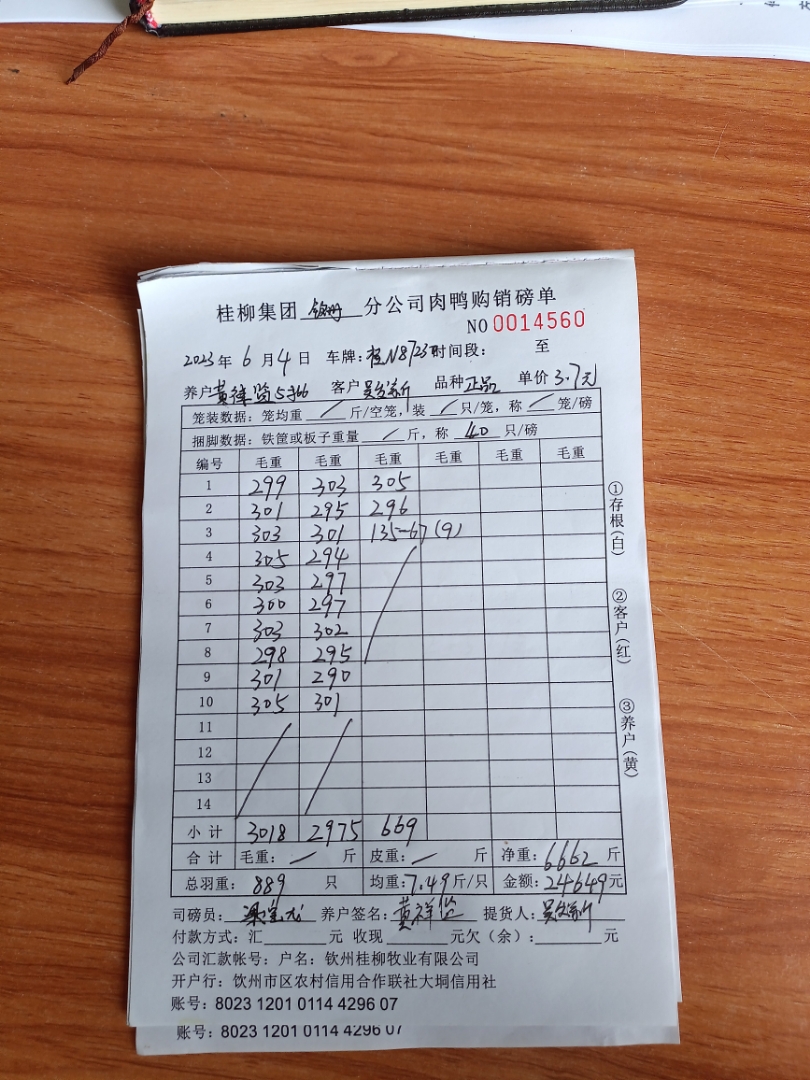 桂柳集团 钦州 分公司肉鸭购销磅单
NO 0014560
2023年 6月 4日 车牌:桂N8723 时间段: 至
养户 黄祥 5366 客户 品种 正品 单价 3.7元
笼装数据:笼均重 / 斤/空笼,装 / 只/笼,称 / 笼/磅
捆脚数据:铁筐或板子重量 / 斤,称 40 只/磅
编号 毛重 毛重 毛重 毛重 毛重 毛重
1 299 303 305
2 301 295 296
3 303 301 135-67(9)
4 305 294
5 303 297
6 300 297
7 303 302
8 298 295
9 301 290
10 305 301
11
12
13
14
小计 3018 2975 669
合计 毛重: / 斤 皮重: / 斤 净重: 6662 斤
总羽重: 889 只 均重: 7.49 斤/只 金额: 24649元
司磅员: 养户签名: 黄祥 提货人:
付款方式:汇 元 收现 元欠(余): 元
公司汇款帐号:户名:钦州桂柳牧业有限公司
开户行:钦州市区农村信用合作联社大垌信用社
账号:8023 1201 0114 4296 07
账号:8023 1201 0114 4296 07
①存根(白)
②客户(红)
③养户(黄)